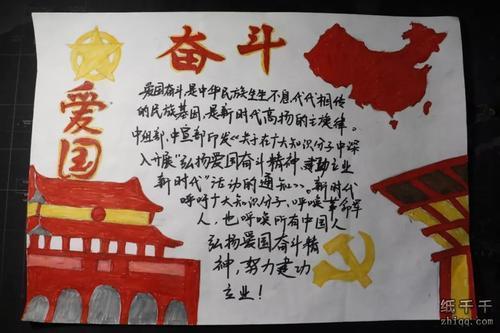 奋斗
爱国
爱国奋斗,是中华民族生生不息,代代相传
的民族基因,是新时代高扬的主旋律。
中组部,中宣部印发《关于在广大知识分子中深
入开展"弘扬爱国奋斗精神,建功立业
新时代"活动的通知》。新时代
呼呼广大知识分子,呼唤革命军
人,也呼唤所有中国人
弘扬爱国奋斗精
神,努力建功
立业!
纸千千
zhiqq.com